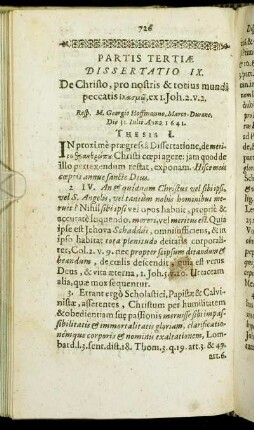 726
PARTIS TERTIÆ
DISSERTATIO IX.
De Christo, pro nostris & totius mundi
peccatis ἱλασμῷ, ex 1. Joh. 2. v. 2.
Resp. M. Georgio Hoffmanno, Marco-Durano,
Die 31 Julii Anno 1641.
THESIS I.
IN proximè prægressâ Dissertatione, de meri-
to Christi cœpi agere: jam quod de
illo pertexendum restat, exponam. Hisce meis
cœptis annue Sancte Deus.
2 IV. An & quidnam Christus vel sibi ipsi,
vel S. Angelis, vel tantùm nobis hominibus me-
ruit? Nihil sibi ipsi vel opus habuit, propriè &
accuratè loquendo, mereri, vel meritus est Quia
ipse est Jehova Schaddai, omnisufficiens, & in
ipso habitat tota plenitudo deitatis corporali-
ter, Col. 2. v. 9. nec propter scipsum ditandum &
beandum, de cœlis descendit, quia est verus
Deus, & vita æterna, 1. Joh. 5. v. 20. Ut taceam
alia, quæ mox sequentur.
3. Errant ergò Scholastici, Papistæ & Calvi-
nistæ, asserentes, Christum per humilitatem
& obedientiam suæ passionis meruisse sibi impas-
sibilitatis & immortalitatis gloriam, clarificatio-
némque corporis & nominis exaltationem, Lom-
bard. l. 3. sent. dist. 18. Thom. 3. q. 19. art. 3. & 49.
art. 6.